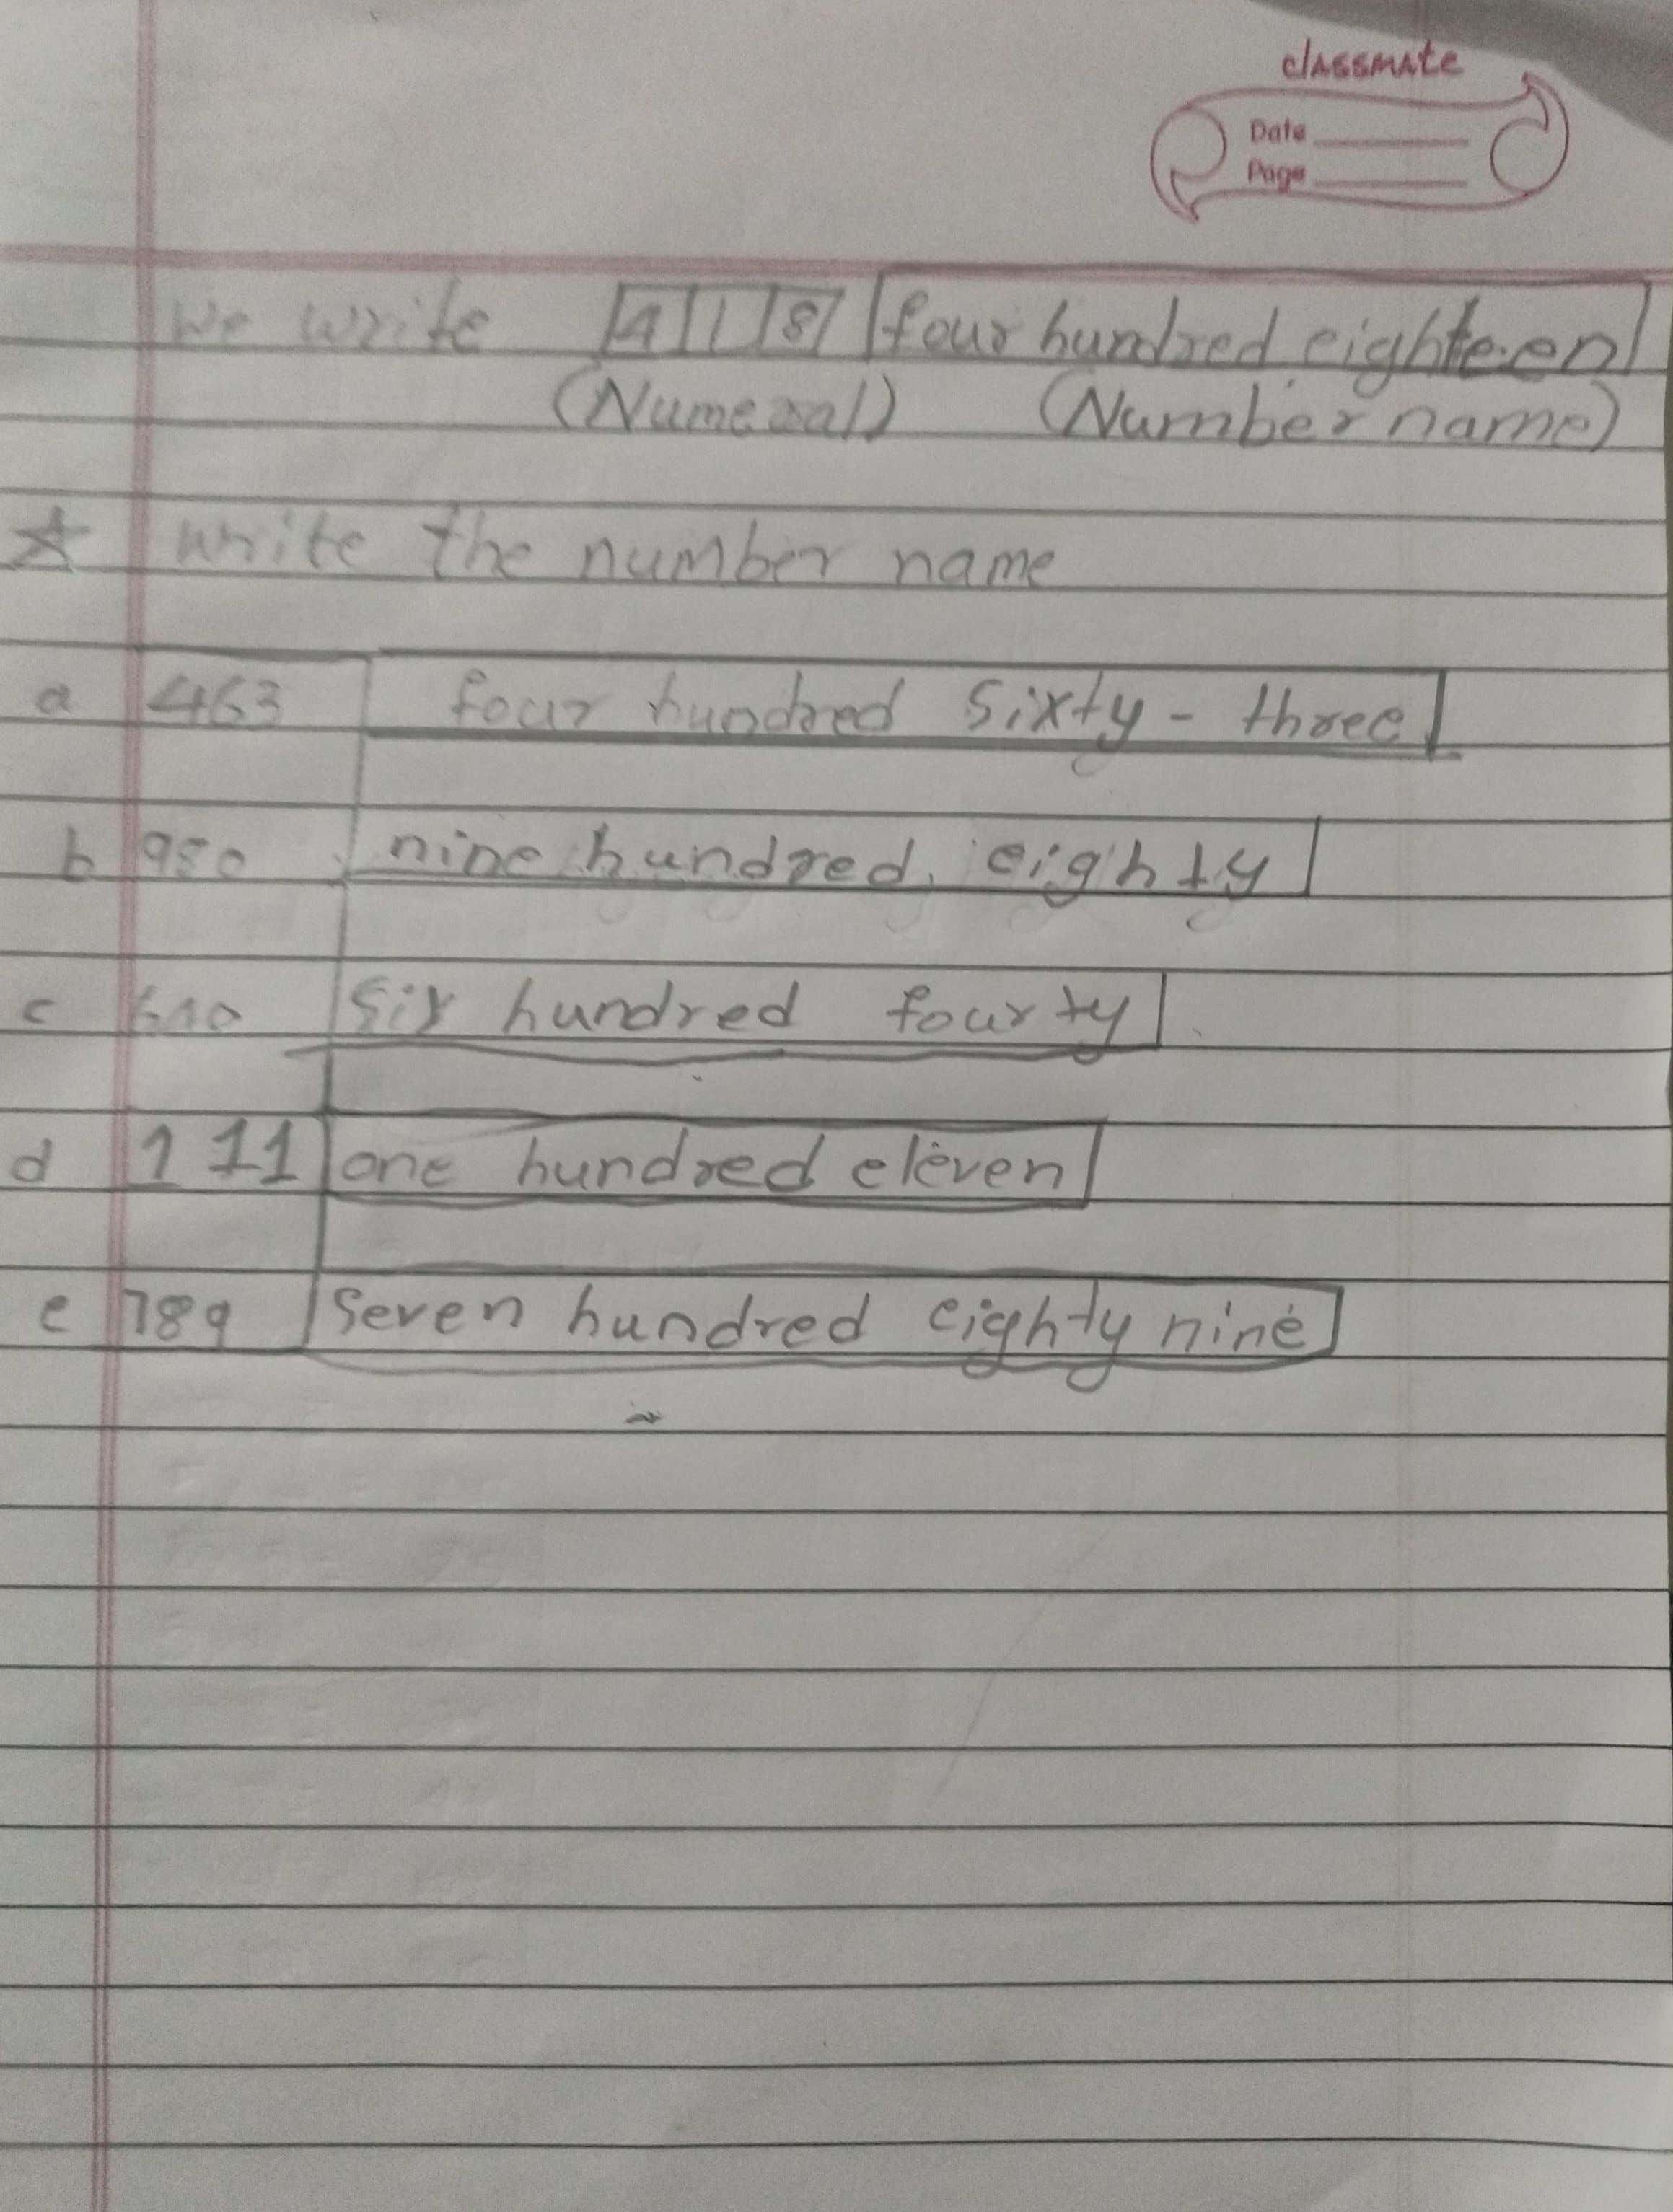 classmate
Date
Page
We write 418 four hundred eighteen
(Numeral) (Number name)
☆ write the number name
a 463 four hundred sixty - three
b 980 nine hundred eighty
c 640 six hundred fourty
d 111 one hundred eleven
e 789 seven hundred eighty nine